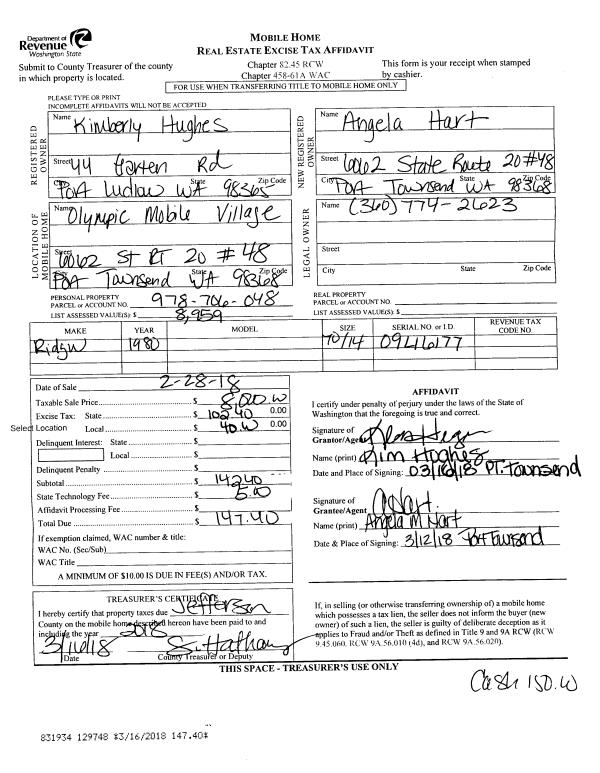 Department of
Revenue
Washington State
MOBILE HOME
REAL ESTATE EXCISE TAX AFFIDAVIT
Submit to County Treasurer of the county
in which property is located.
Chapter 82.45 RCW
Chapter 458-61A WAC
This form is your receipt when stamped
by cashier.
FOR USE WHEN TRANSFERRING TITLE TO MOBILE HOME ONLY
PLEASE TYPE OR PRINT
INCOMPLETE AFFIDAVITS WILL NOT BE ACCEPTED
REGISTERED OWNER
Name Kimberly Hughes
Street 44 Garten Rd
City State Zip Code
Port Ludlow WA 98365
NEW REGISTERED OWNER
Name Angela Hart
Street 6062 State Route 20 #48
City State Zip Code
Port Townsend WA 98368
LOCATION OF MOBILE HOME
Name Olympic Mobile Village
Street 6062 St RT 20 # 48
City State Zip Code
Port Townsend WA 98368
LEGAL OWNER
Name (360) 774-2623
Street
City State Zip Code
PERSONAL PROPERTY
PARCEL or ACCOUNT NO. 978-706-048
LIST ASSESSED VALUE(S): $ 8,959
REAL PROPERTY
PARCEL or ACCOUNT NO.
LIST ASSESSED VALUE(S): $
MAKE YEAR MODEL SIZE SERIAL NO. or I.D. REVENUE TAX CODE NO.
Ridgw 1980 70/14 09416177
Date of Sale 2-28-18
Taxable Sale Price $ 8,000.00
Excise Tax: State $ 102.40 0.00
Select Location Local $ 40.00 0.00
Delinquent Interest: State $
Local $
Delinquent Penalty $
Subtotal $ 142.40
State Technology Fee $ 5.00
Affidavit Processing Fee $
Total Due $ 147.40
If exemption claimed, WAC number & title:
WAC No. (Sec/Sub)
WAC Title
A MINIMUM OF $10.00 IS DUE IN FEE(S) AND/OR TAX.
AFFIDAVIT
I certify under penalty of perjury under the laws of the State of
Washington that the foregoing is true and correct.
Signature of
Grantor/Agent
Name (print) Kim Hughes
Date and Place of Signing: 03/16/18 PT. Townsend
Signature of
Grantor/Agent A Hart
Name (print) Angela M Hart
Date & Place of Signing: 3/12/18 Port Townsend
TREASURER'S CERTIFICATE
I hereby certify that property taxes due Jefferson
County on the mobile home described hereon have been paid to and
including the year 2018
3/16/18 S. Hathaway
Date County Treasurer or Deputy
If, in selling (or otherwise transferring ownership of) a mobile home
which possesses a tax lien, the seller does not inform the buyer (new
owner) of such a lien, the seller is guilty of deliberate deception as it
applies to Fraud and/or Theft as defined in Title 9 and 9A RCW (RCW
9.45.060, RCW 9A.56.010 (4d), and RCW 9A.56.020).
THIS SPACE - TREASURER'S USE ONLY
Cash 150.00
831934 129748 *3/16/2018 147.40*